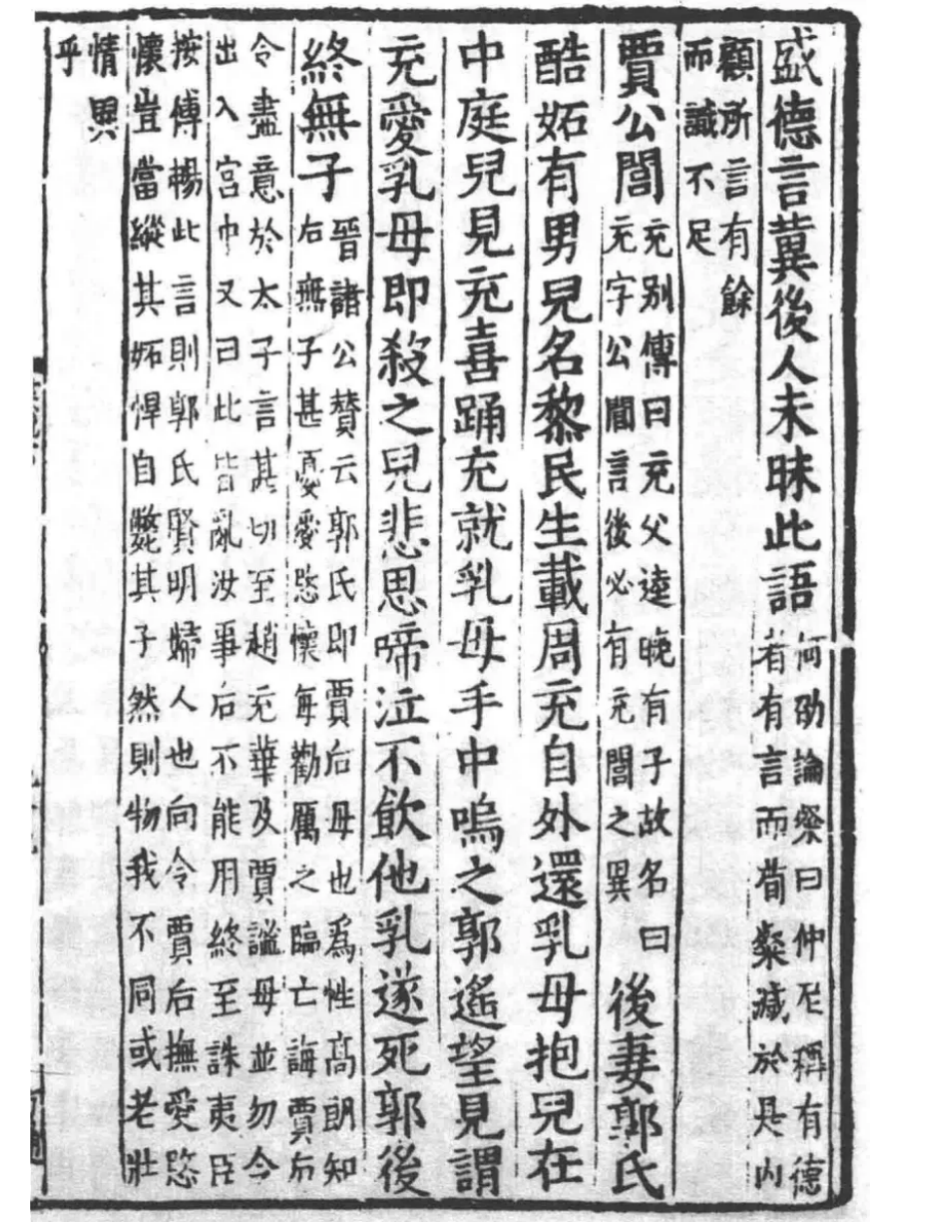 盛德言冀後人未昧此語
何劭論粲曰仲尼稱有德
者有言而荀粲減於是內
顧所言有餘
而識不足
賈公閭
充別傳曰充父逵晚有子故名曰
充字公閭言後必有充閭之異
後妻郭氏
酷妬有男兒名黎民生載周充自外還乳母抱兒在
中庭兒見充喜踊充就乳母手中嗚之郭遙望見謂
充愛乳母即殺之兒悲思啼泣不飲他乳遂死郭後
終無子
晉諸公賛云郭氏即賈后母也爲性高朗知
后無子甚憂愛愍懷每勸厲之臨亡誨賈后
令盡意於太子言甚切至趙充華及賈謐母並勿令
出入宮中又曰此皆亂汝事后不能用終至誅夷臣
按傅楊此言則郭氏賢明婦人也向令賈后撫愛愍
懷豈當縱其妬悍自斃其子然則物我不同或老壯
情異
乎